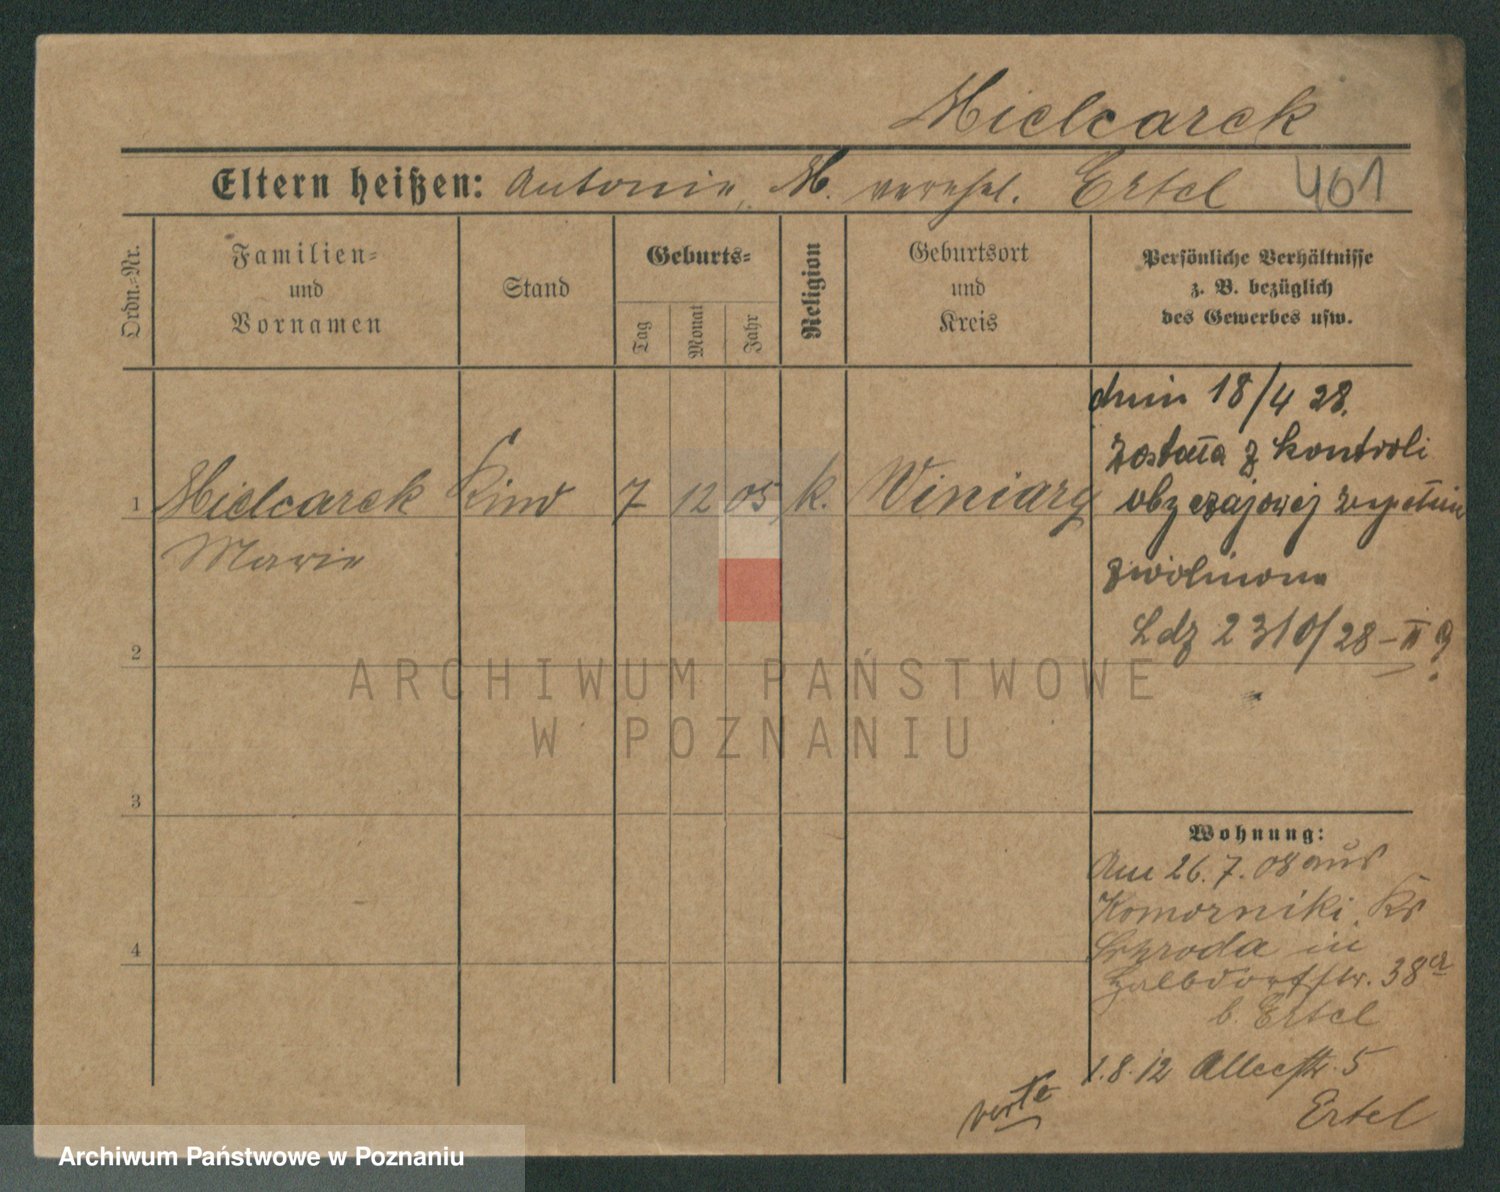 Mielcarek
Eltern heißen: Antonie, M. verehel. Ertel 461
Ordn.=Nr.
Familien=
und
Vornamen
Stand
Geburts=
Tag
Monat
Jahr
Religion
Geburtsort
und
Kreis
Persönliche Verhältnisse
z. B. bezüglich
des Gewerbes usw.
1 Mielcarek Kind 7 12 05 k. Winiary
Marie
dnia 18/4 28.
została z kontroli
obyczajowej zupełnie
zwolniona
Ldz 2310/28-II
2
3
4
Wohnung:
Am 26.7.08 aus
Komorniki, Kr
Schroda in
Halbdorfstr. 38a
b. Ertel
1.8.12 Alleestr. 5
Ertel
verte
ARCHIWUM PAŃSTWOWE
W POZNANIU
Archiwum Państwowe w Poznaniu